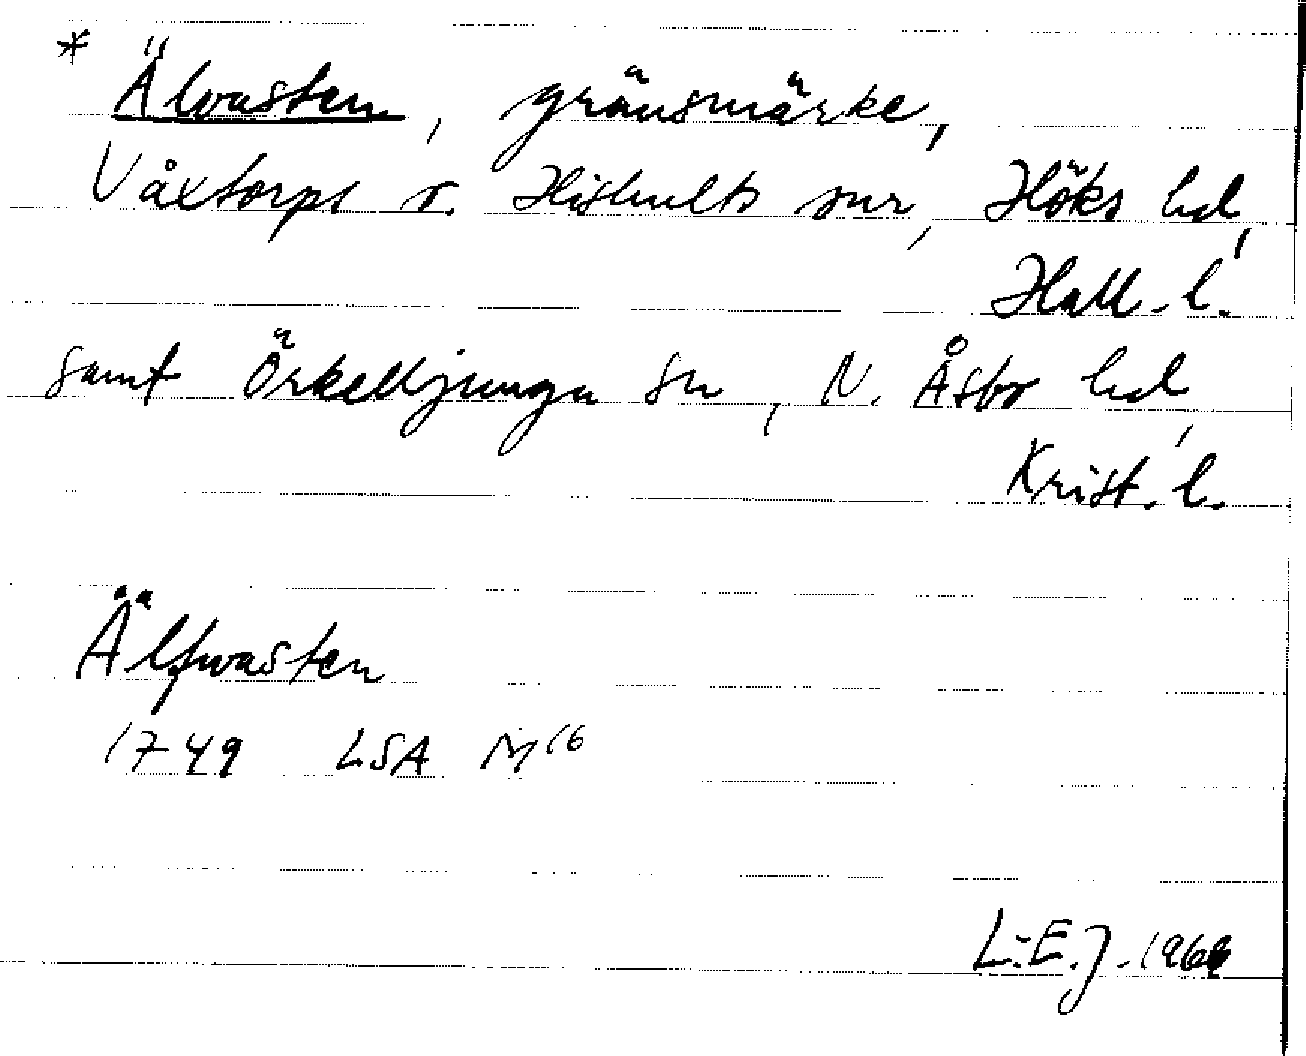 * Älvasten, gränsmärke,
Våxtorps o. Hishults snr, Höks hd,
Hall. l.
samt Örkelljunga sn, N. Åsbo hd,
Krist. l.
Älfwasten
1749 LSA M16
L.-E. J. 1969